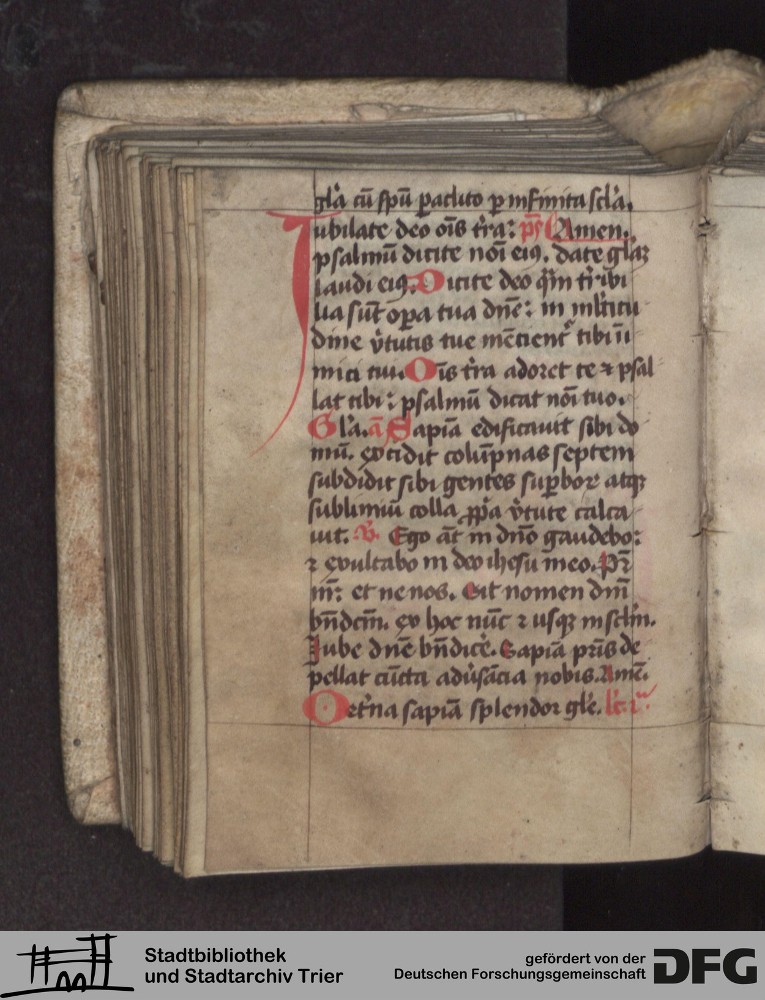 gl̄a cū spū ꝑaclito ꝑ infinita scl̄a.
Iubilate deo oīs tr̄a: ps̄ Amen.
psalmū dicite noī eiꝰ. date glaꝫ
laudi eiꝰ. Dicite deo q̄m tr̄ibi
lia sūt oꝑa tua dn̄e: in ml̄titu
dine v̄tutis tue mēcient᷑ tibi īi
mici tui. Oīs tr̄a adoret te ⁊ psal
lat tibi: psalmū dicat noī tuo.
Gl̄a. a᷑ Sapīa edificauit sibi do
mū. excidit colūpnas septem
subdidit sibi gentes suꝑboꝝ atqꝫ
sublimiū colla ꝓpa v̄tute calca
uit. V̄. Ego āt in dn̄o gaudebo:
⁊ exultabo in deo ihesu meo. Pr̄
nr̄: et ne nos. Sit nomen dn̄i
bn̄dcm̄. ex hoc nūc ⁊ usqꝫ in sclm̄.
Iube dn̄e bn̄dicē. Sapīa pr̄is de
pellat cūcta adūsācia nobis. Amē.
O et̄na sapīa splendor gl̄e. lc̄. ī.
Stadtbibliothek
und Stadtarchiv Trier
gefördert von der
Deutschen Forschungsgemeinschaft
DFG